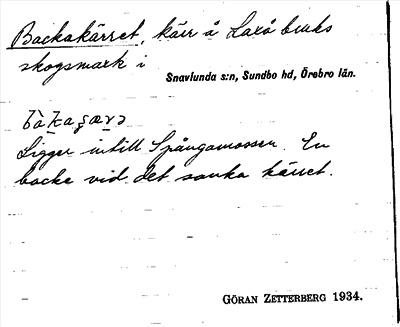 Backakärret, kärr å Laxå bruks
skogsmark i
Snavlunda s:n, Sundbo hd, Örebro län.
Ligger intill Spångamossen. En
backe vid det sanka kärret.
GÖRAN ZETTERBERG 1934.